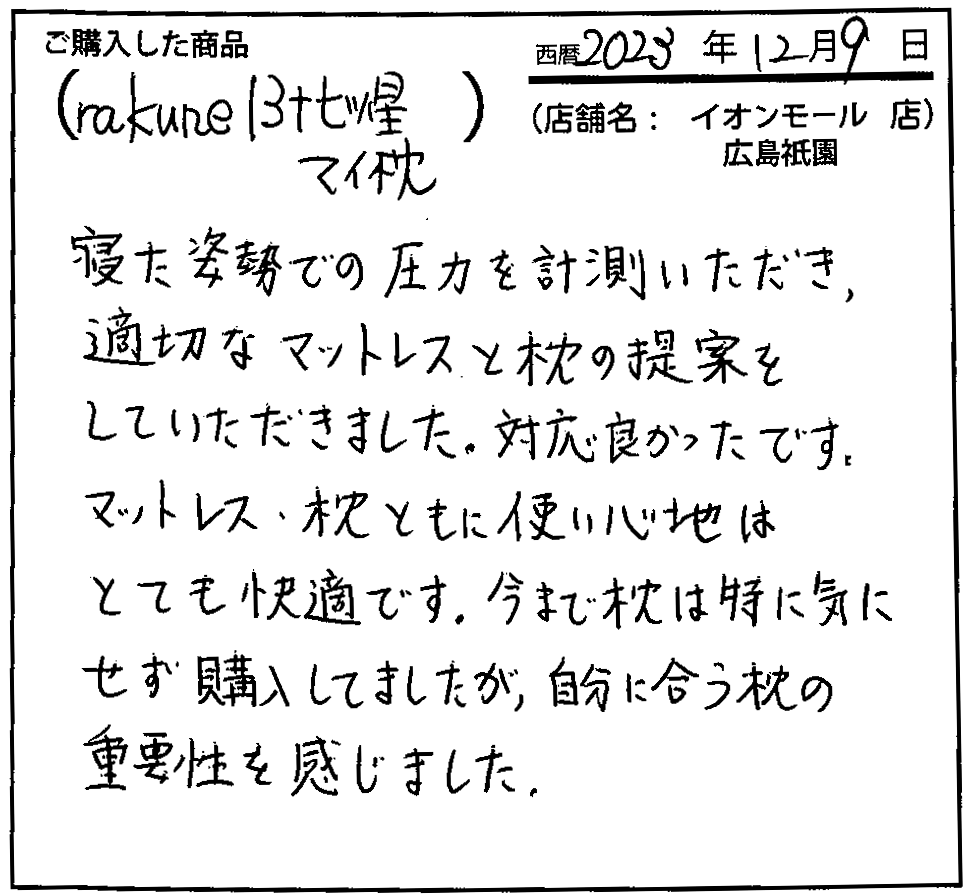 ご購入した商品
西暦2023年12月9日
(rakune13+七ツ星)
マイ枕
(店舗名： イオンモール 店)
広島祇園
寝た姿勢での圧力を計測いただき,
適切なマットレスと枕の提案を
していただきました。対応良かったです。
マットレス、枕ともに使い心地は
とても快適です。今まで枕は特に気に
せず購入してましたが, 自分に合う枕の
重要性を感じました。